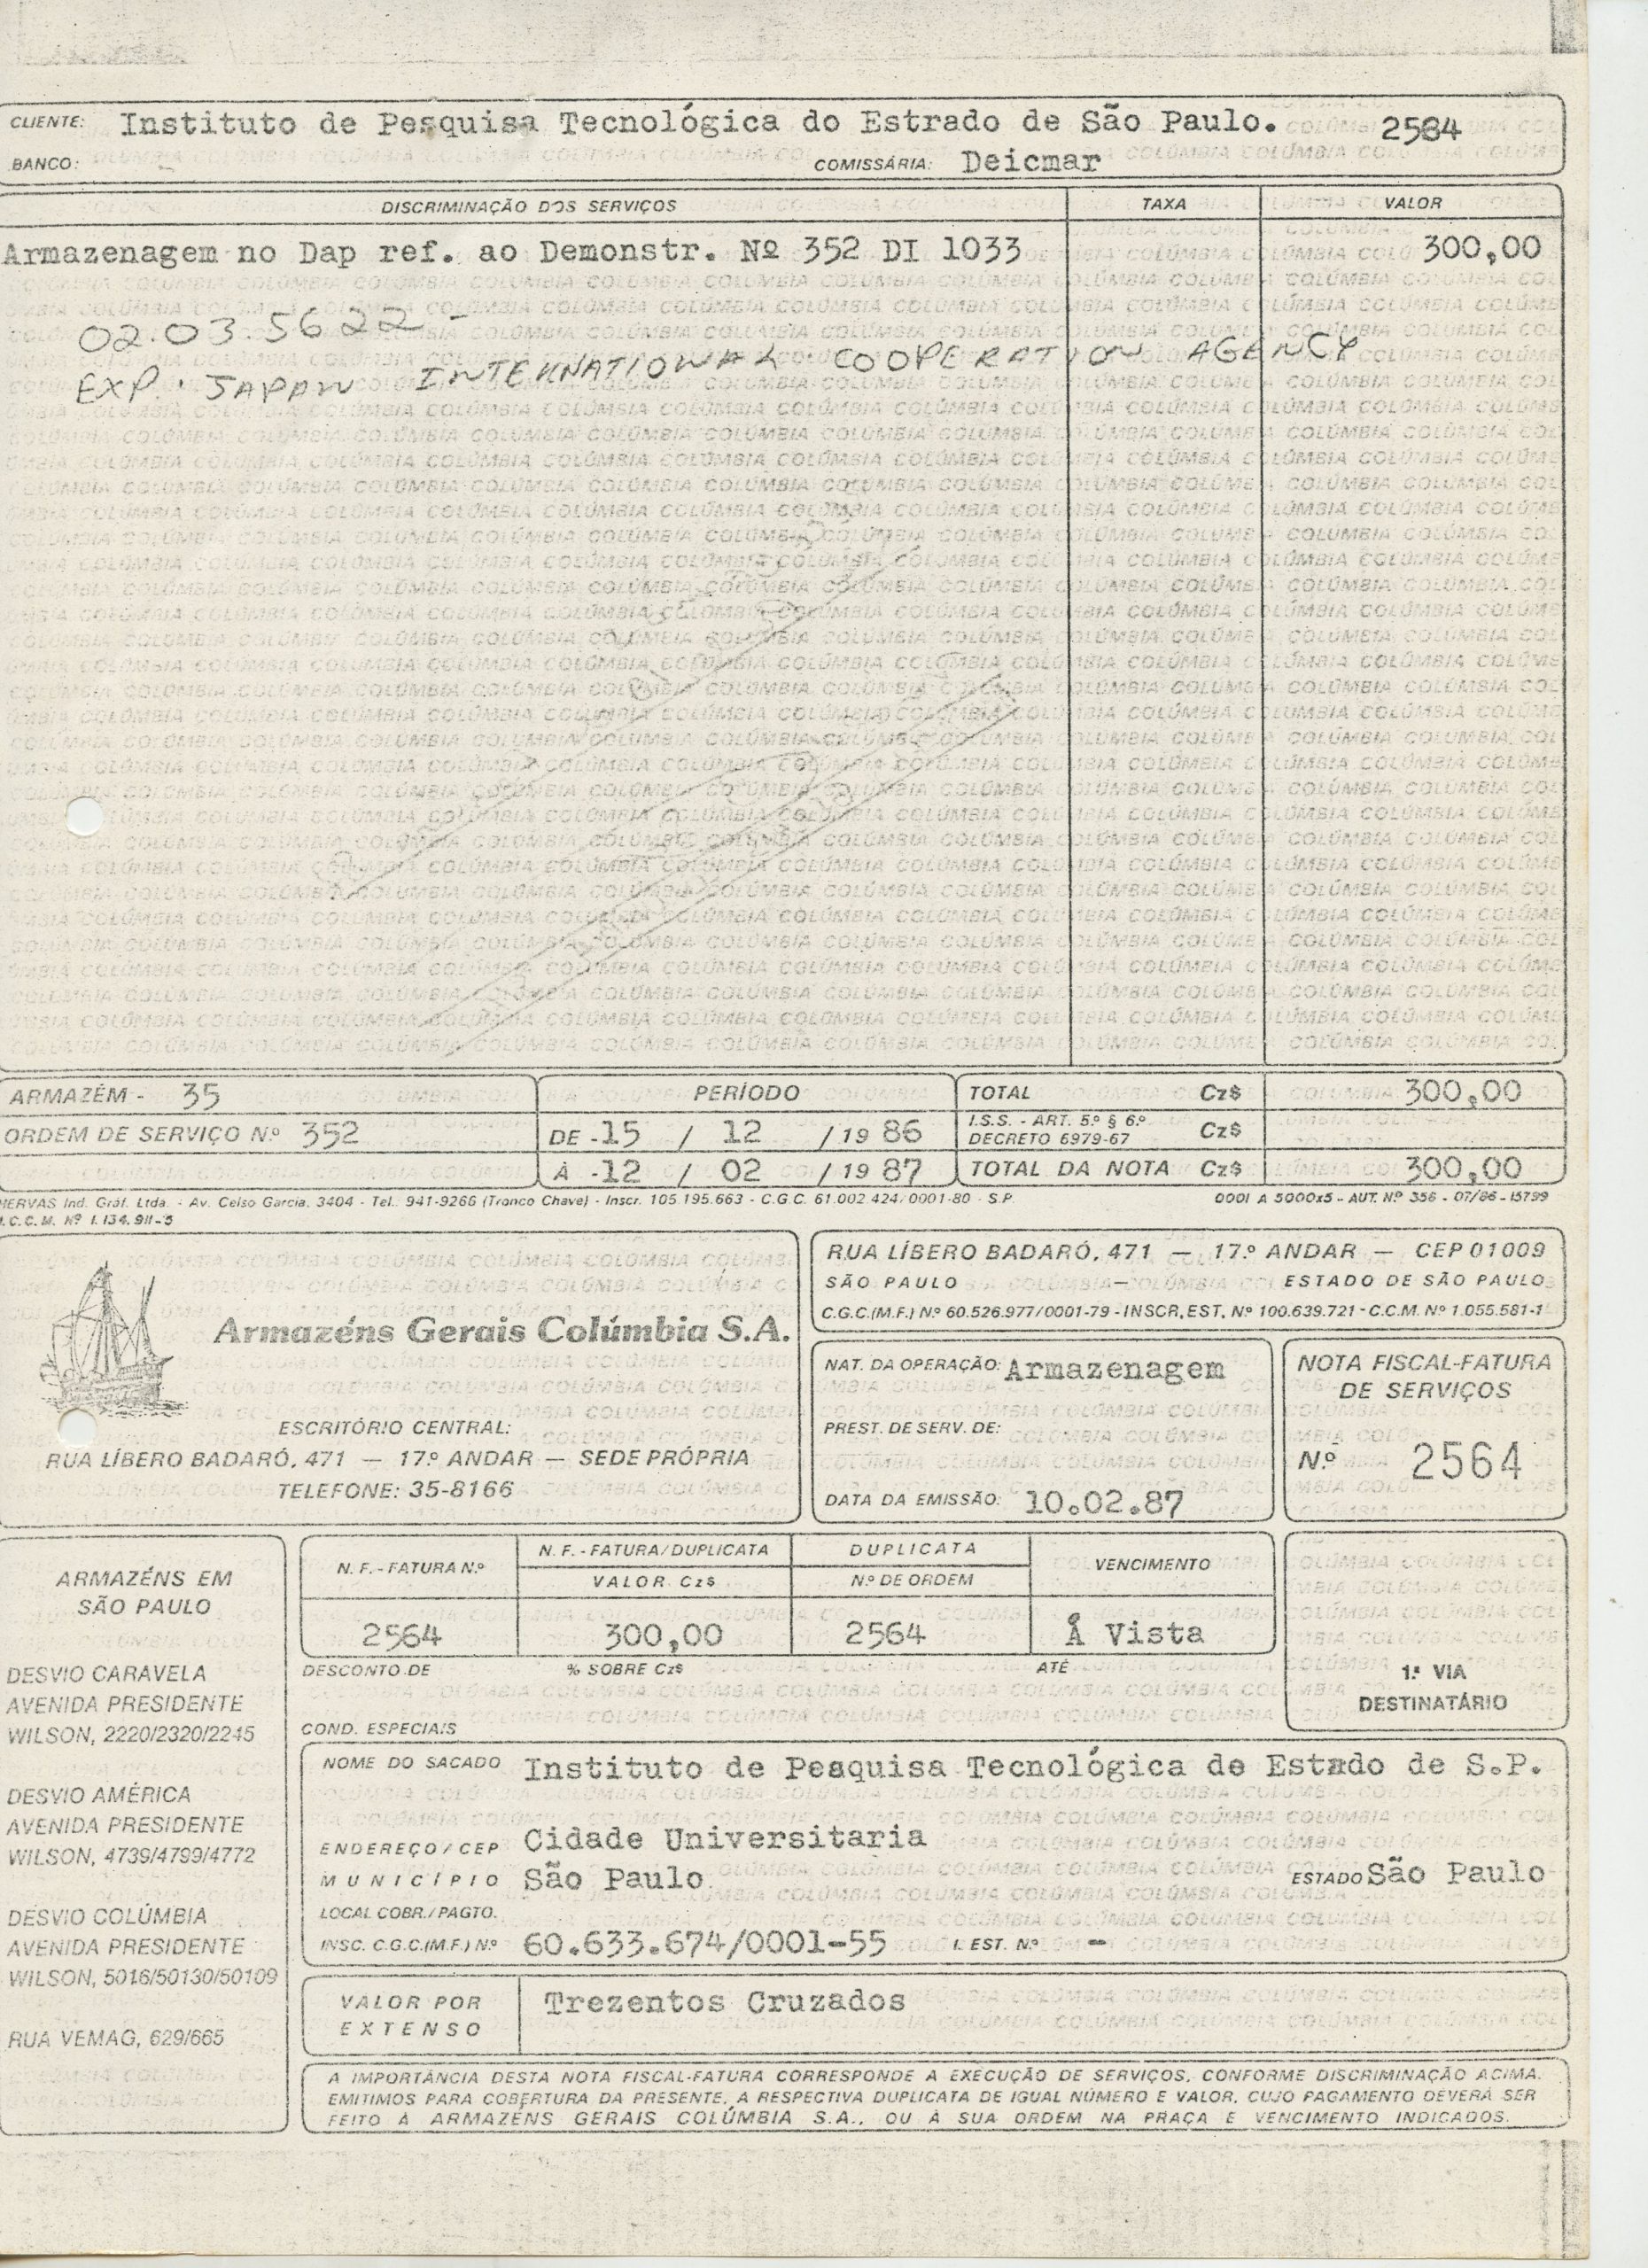 CLIENTE: Instituto de Pesquisa Tecnológica do Estrado de São Paulo. 2564
BANCO: - COMISSÁRIA: Deicmar
DISCRIMINAÇÃO DOS SERVIÇOS TAXA VALOR
Armazenagem no Dap ref. ao Demonstr. Nº 352 DI 1033 300,00
02.03.5622 -
EXP.: JAPAN INTERNATIONAL COOPERATION AGENCY
ARMAZÉM - 35 PERÍODO TOTAL Cz$ 300,00
ORDEM DE SERVIÇO N.º 352 DE -15 / 12 / 19 86 I.S.S. - ART. 5.º § 6.º DECRETO 6979-67 Cz$
À -12 / 02 / 19 87 TOTAL DA NOTA Cz$ 300,00
HERVAS Ind. Gráf. Ltda. - Av. Celso Garcia, 3404 - Tel. 941-9266 (Tronco Chave) - Inscr. 105.195.663 - C.G.C. 61.002.424/0001-80 - S.P. 0001 A 5000x5 - AUT. N.º 356 - 07/86 - 15799
I.C.C.M. Nº 1.134.911-5
RUA LÍBERO BADARÓ, 471 — 17.º ANDAR — CEP 01009
SÃO PAULO — ESTADO DE SÃO PAULO
C.G.C.(M.F.) N.º 60.526.977/0001-79 - INSCR. EST. N.º 100.639.721 - C.C.M. N.º 1.055.581-1
Armazéns Gerais Colúmbia S.A.
ESCRITÓRIO CENTRAL:
RUA LÍBERO BADARÓ, 471 — 17.º ANDAR — SEDE PRÓPRIA
TELEFONE: 35-8166
NAT. DA OPERAÇÃO: Armazenagem
PREST. DE SERV. DE:
DATA DA EMISSÃO: 10.02.87
NOTA FISCAL-FATURA
DE SERVIÇOS
N.º 2564
ARMAZÉNS EM
SÃO PAULO
DESVIO CARAVELA
AVENIDA PRESIDENTE
WILSON, 2220/2320/2245
DESVIO AMÉRICA
AVENIDA PRESIDENTE
WILSON, 4739/4799/4772
DESVIO COLÚMBIA
AVENIDA PRESIDENTE
WILSON, 5016/50130/50109
RUA VEMAG, 629/665
N. F. - FATURA N.º N. F. - FATURA/DUPLICATA DUPLICATA VENCIMENTO
VALOR Cz$ N.º DE ORDEM
2564 300,00 2564 À Vista
DESCONTO DE % SOBRE Cz$ ATÉ
COND. ESPECIAIS
1.ª VIA
DESTINATÁRIO
NOME DO SACADO Instituto de Pesquisa Tecnológica de Estado de S.P.
ENDEREÇO / CEP Cidade Universitaria
MUNICÍPIO São Paulo ESTADO São Paulo
LOCAL COBR./PAGTO.
INSC. C.G.C.(M.F.) N.º 60.633.674/0001-55 I. EST. N.º -
VALOR POR EXTENSO Trezentos Cruzados
A IMPORTÂNCIA DESTA NOTA FISCAL-FATURA CORRESPONDE A EXECUÇÃO DE SERVIÇOS, CONFORME DISCRIMINAÇÃO ACIMA.
EMITIMOS PARA COBERTURA DA PRESENTE, A RESPECTIVA DUPLICATA DE IGUAL NÚMERO E VALOR, CUJO PAGAMENTO DEVERÁ SER
FEITO À ARMAZÉNS GERAIS COLÚMBIA S.A., OU À SUA ORDEM NA PRAÇA E VENCIMENTO INDICADOS.